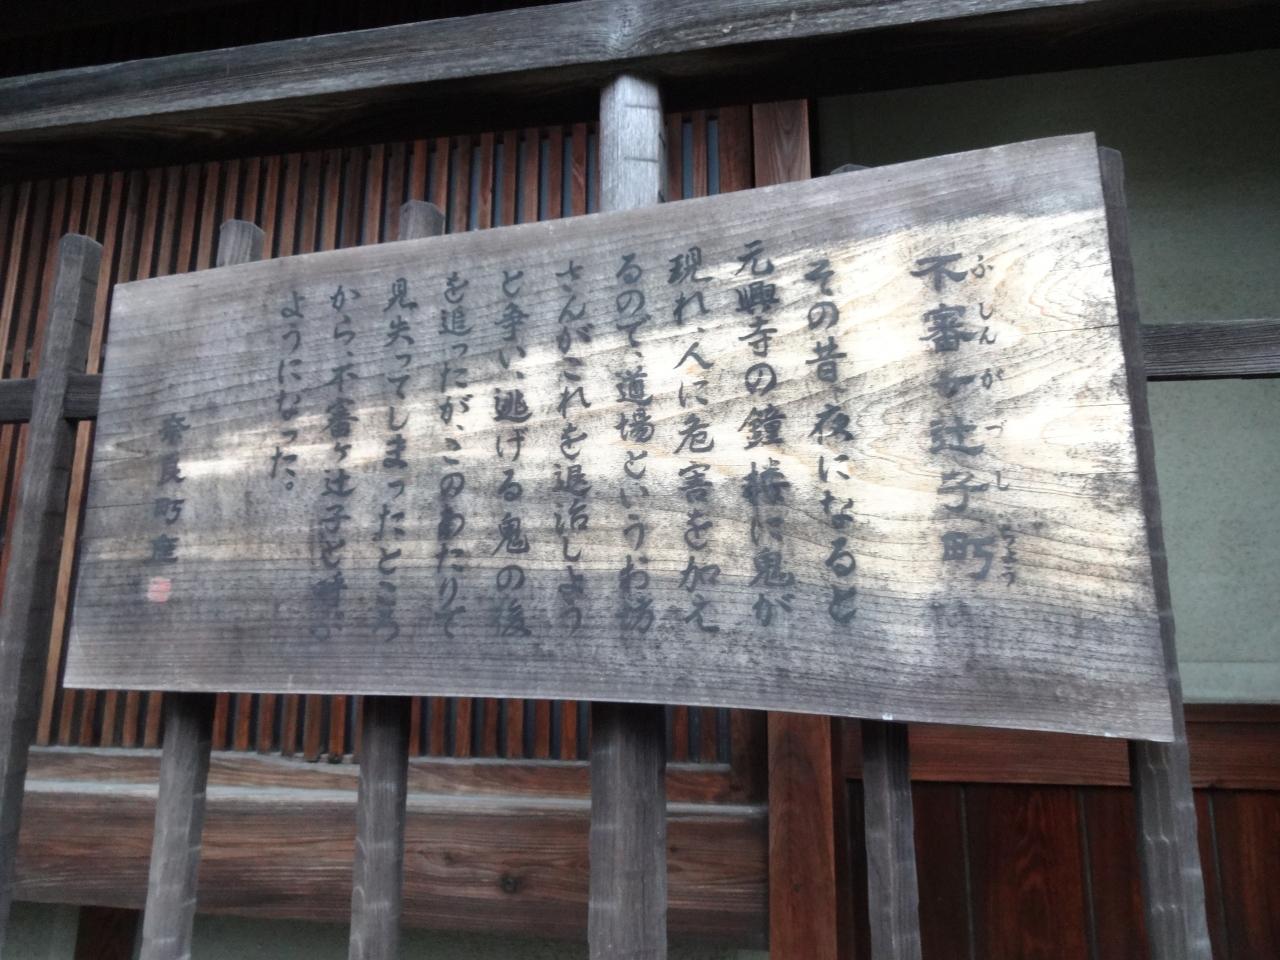 不審ヶ辻子町
ふしんがづしちょう
その昔、夜になると
元興寺の鐘楼に鬼が
現れ、人に危害を加え
るので、道場というお坊
さんがこれを退治しよう
と争い、逃げる鬼の後
を追ったが、このあたりで
見失ってしまったところ
から、不審ヶ辻子と呼ぶ
ようになった。
奈良町座